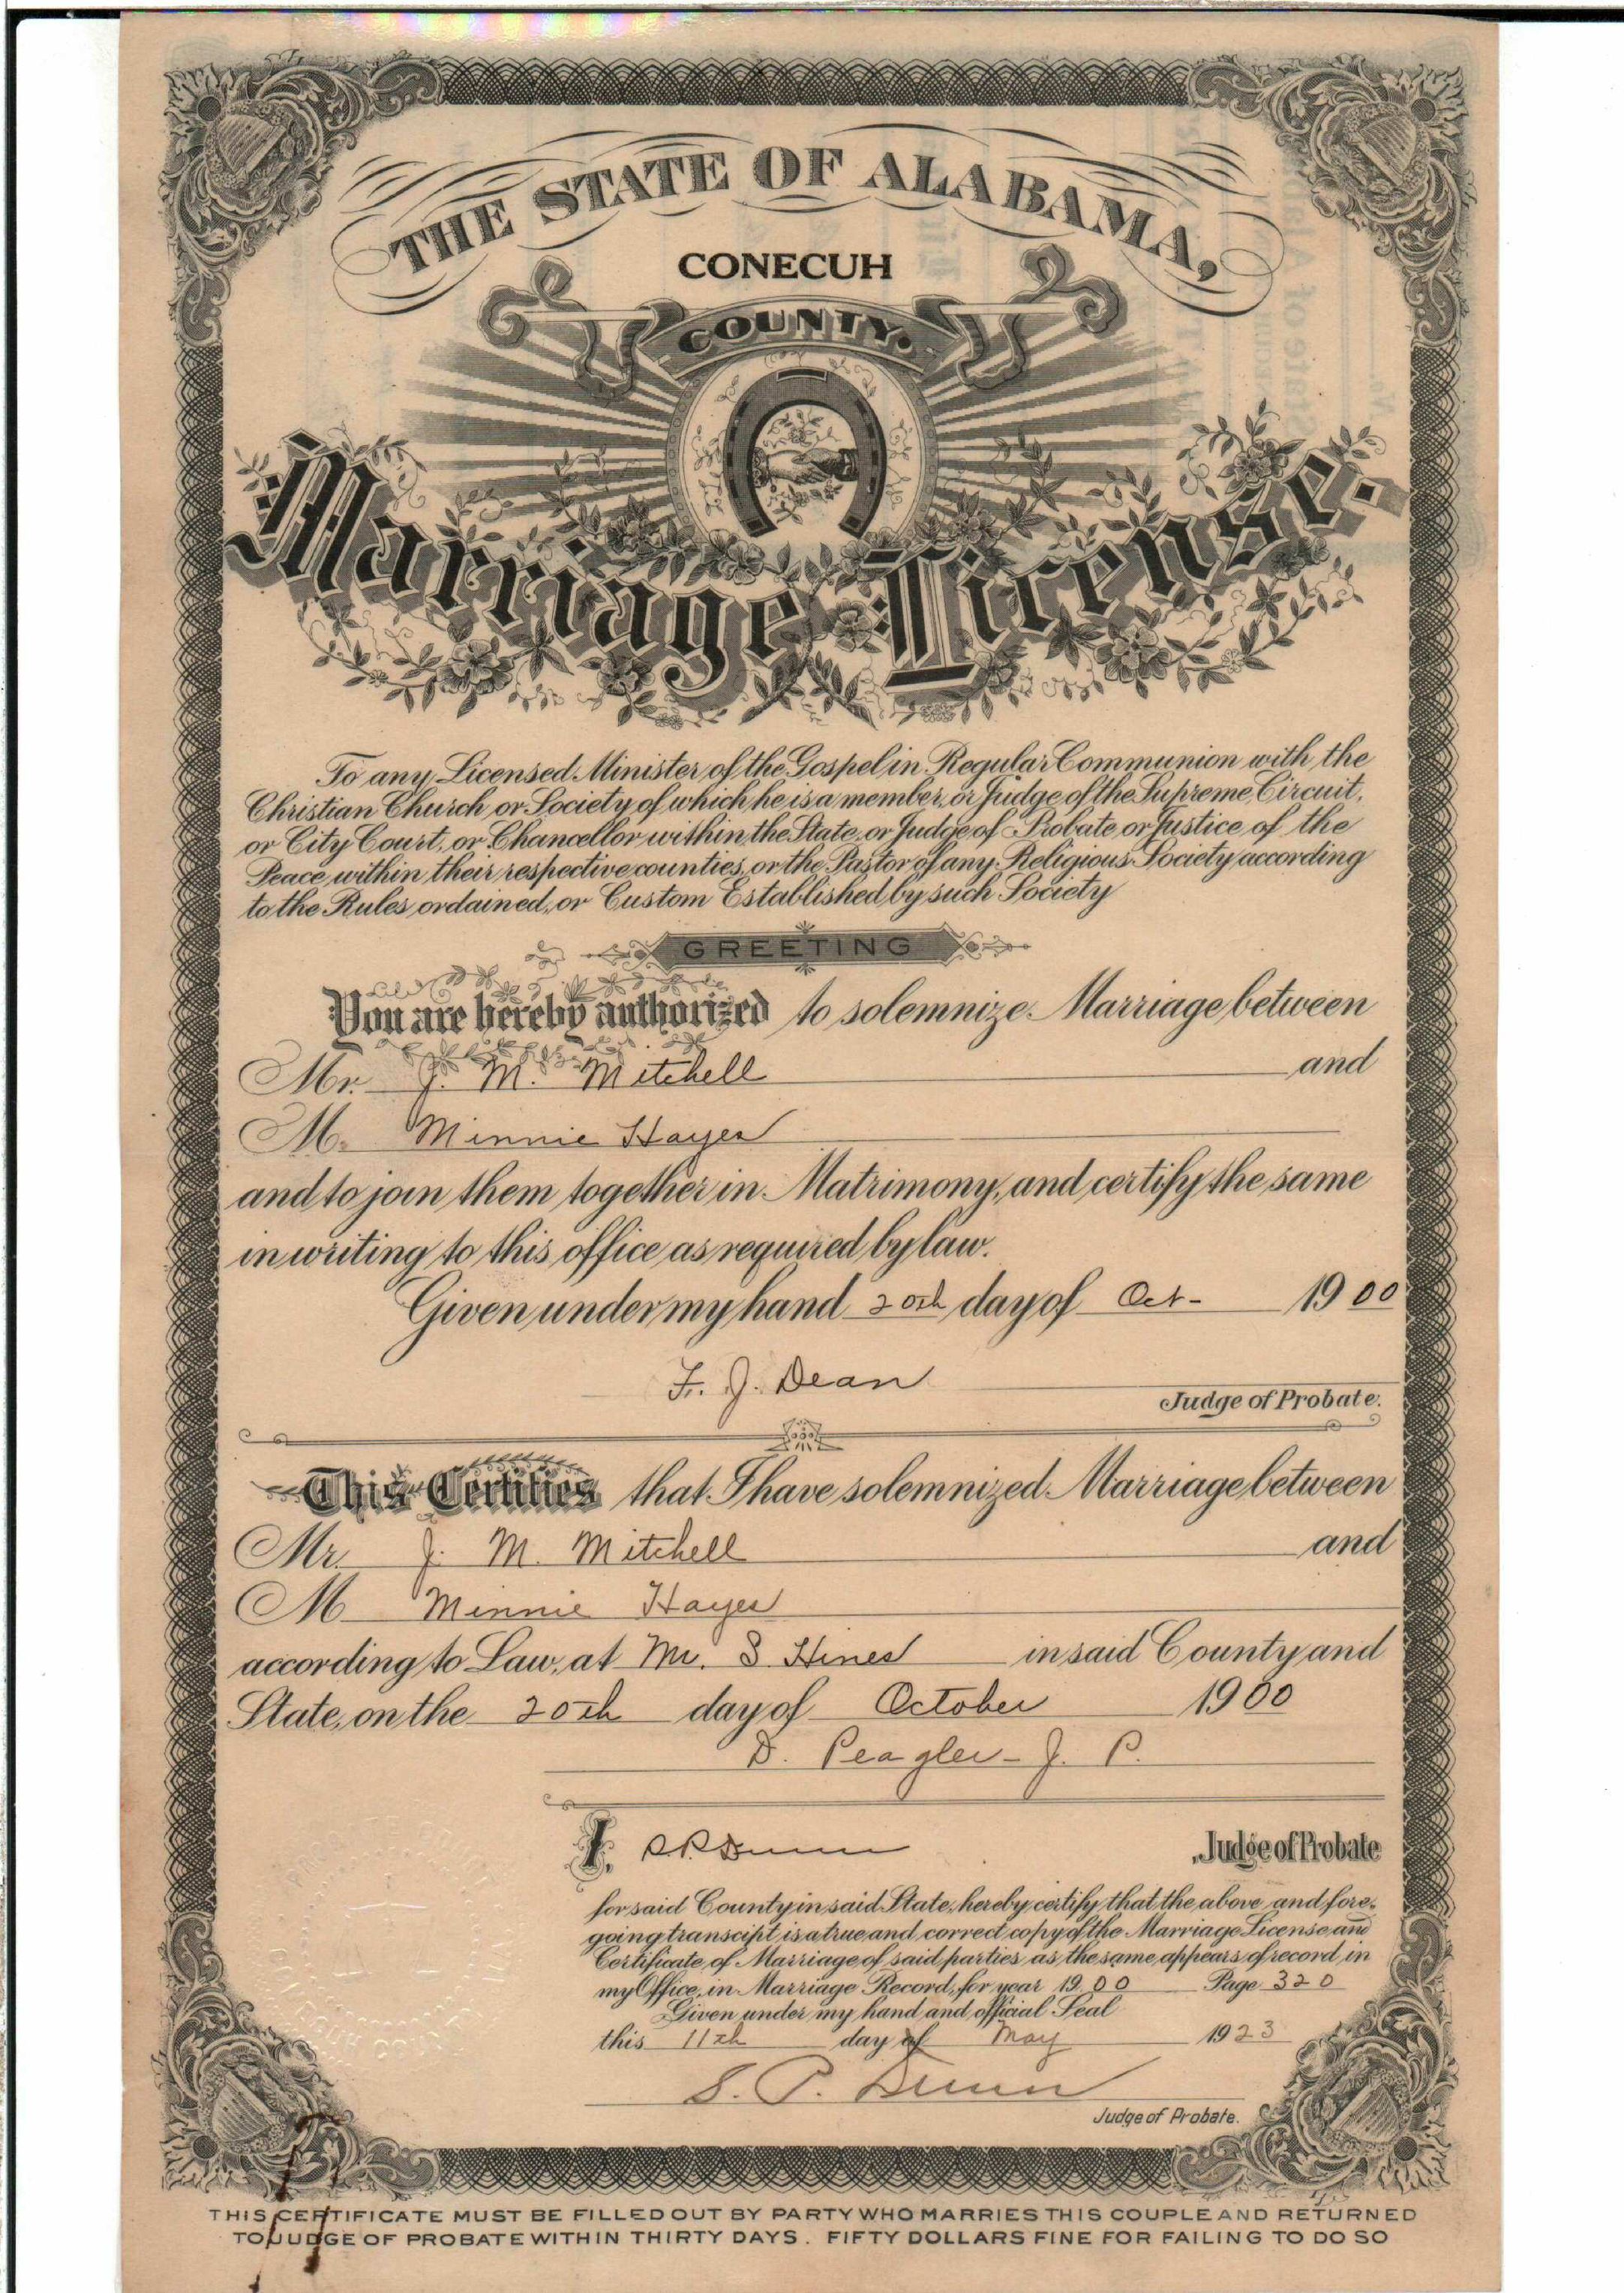 THE STATE OF ALABAMA,
CONECUH
COUNTY.
Marriage License.
To any Licensed Minister of the Gospel in Regular Communion with the
Christian Church or Society of which he is a member, or Judge of the Supreme, Circuit,
or City Court, or Chancellor within the State, or Judge of Probate or Justice of the
Peace within their respective counties, or the Pastor of any Religious Society according
to the Rules ordained, or Custom Established by such Society
GREETING
You are hereby authorized to solemnize Marriage between
Mr. J. M. Mitchell and
M. Minnie Hayes
and to join them together in Matrimony, and certify the same
in writing to this office as required by law.
Given under my hand 20th day of Oct- 1900
F. J. Dean
Judge of Probate.
This Certifies that I have solemnized Marriage between
Mr. J. M. Mitchell and
M Minnie Hayes
according to Law, at M. S. Hines in said County and
State, on the 20th day of October 1900
D. Peagler - J. P.
I, Dunn Judge of Probate
for said County in said State, hereby certify that the above and fore-
going transcipt is a true and correct copy of the Marriage License and
Certificate of Marriage of said parties as the same appears of record in
my Office, in Marriage Record, for year 1900 Page 320
Given under my hand and official Seal
this 11th day of May 1923
S. P. Dunn
Judge of Probate.
THIS CERTIFICATE MUST BE FILLED OUT BY PARTY WHO MARRIES THIS COUPLE AND RETURNED
TO JUDGE OF PROBATE WITHIN THIRTY DAYS. FIFTY DOLLARS FINE FOR FAILING TO DO SO